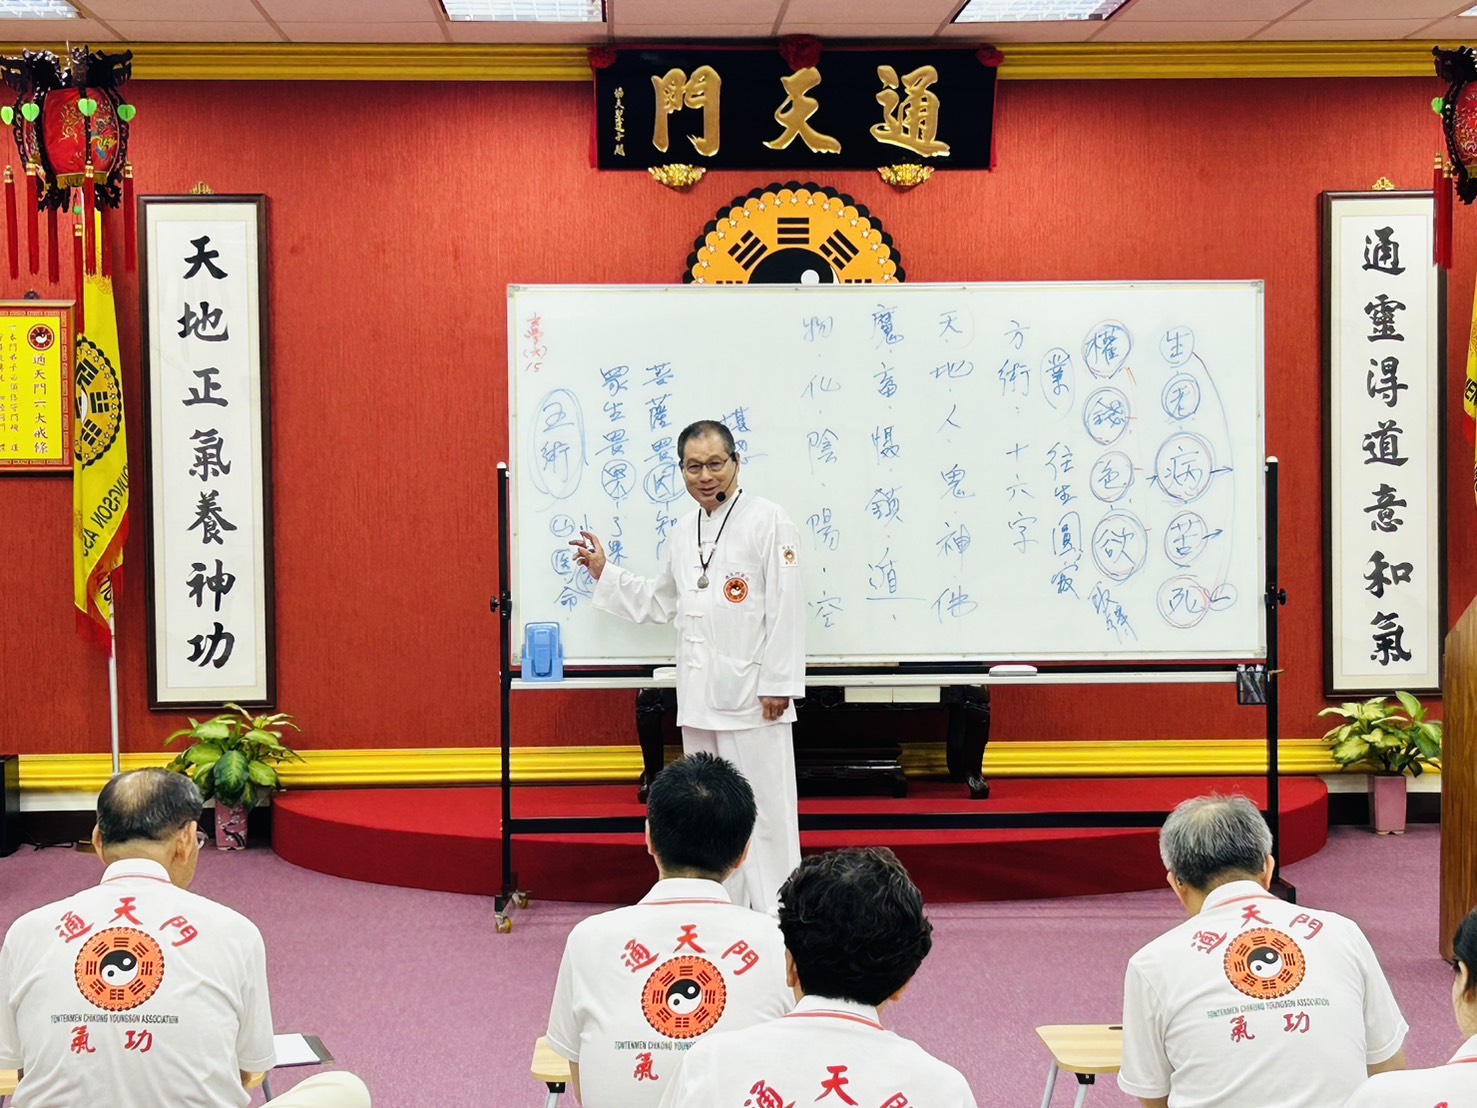 通天門
通靈得道意和氣
天地正氣養神功
通天門六大戒條
生老病苦死
權錢色欲
業 往生圓寂
方術·十六字
天·地·人·鬼·神·佛
魔·畜·懼·鎖·道·
物·化·陰·陽·空
菩薩畏因·知
眾生畏果·了果
五術
山醫·命
15
通天門
TONTENMEN CHIKONG YOUNGSON ASSOCIATION
氣功
通天門
TONTENMEN CHIKONG YOUNGS
氣
通天
通天門
TONTENMEN CHIKONG YOUNGSON ASSOCIATION
氣功